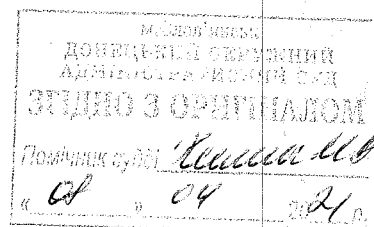 м.Слов'янськ
ДОНЕЦЬКИЙ ОКРУЖНИЙ
АДМІНІСТРАТИВНИЙ СУД
ЗГІДНО З ОРИГІНАЛОМ
Помічник судді
« 08 » 04 2021 р.